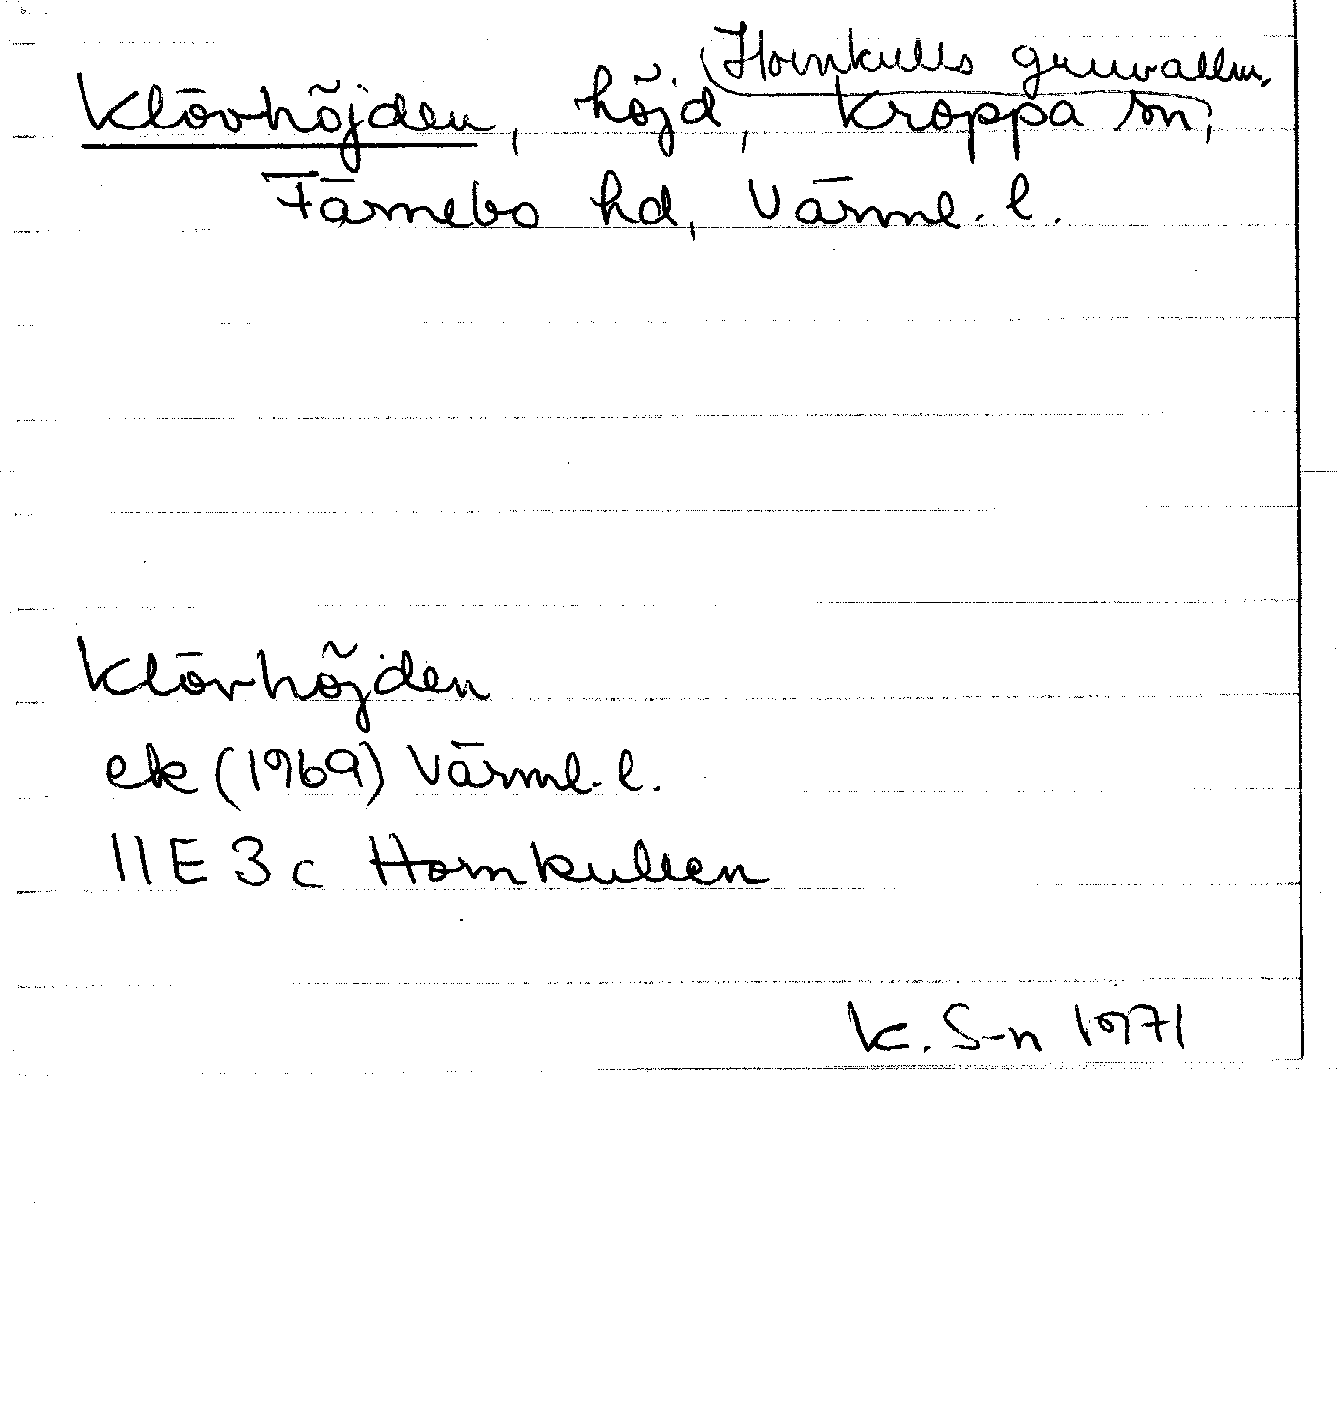 Hornkulls gruvallm.
Klövhöjden, höjd, Kroppa sn,
Färnebo hd, Värml. l.
Klövhöjden
ek (1969) Värml. l.
11E 3c Hornkullen
K. S-n 1971